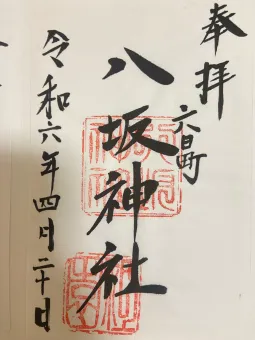 奉拝
六日町
八坂神社
令和六年四月二十日